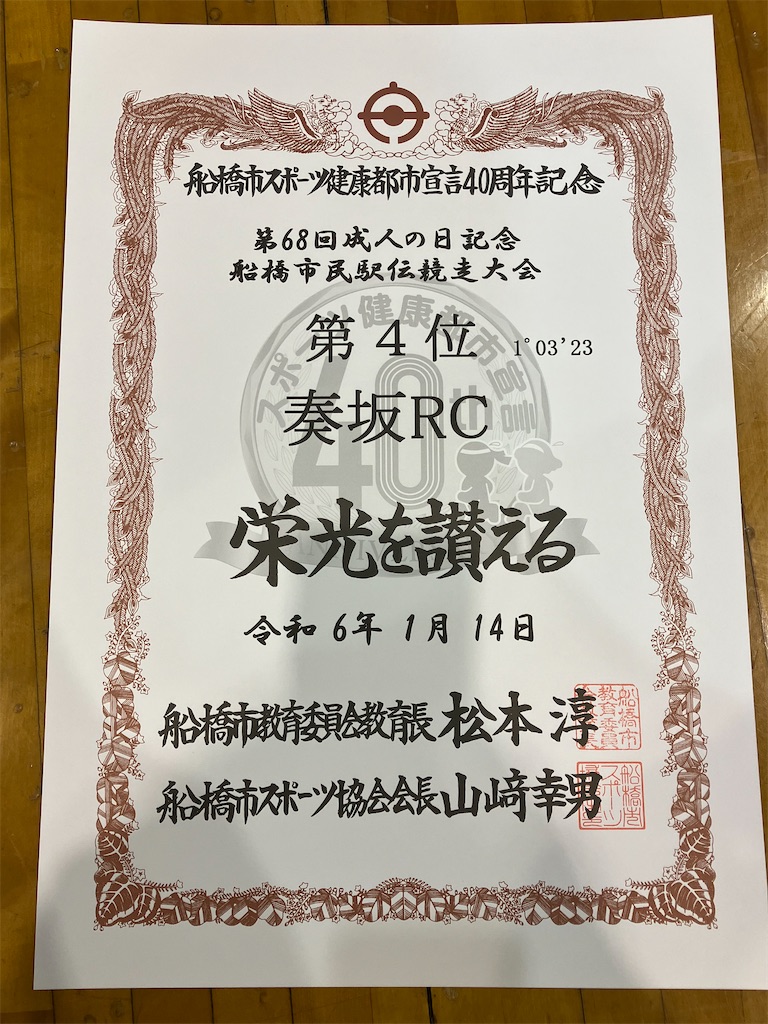 船橋市スポーツ健康都市宣言40周年記念
第68回成人の日記念
船橋市民駅伝競走大会
スポーツ健康都市宣言
40th
第4位 1°03’23
奏坂RC
栄光を讃える
令和6年1月14日
船橋市教育委員会教育長 松本淳
船橋市スポーツ協会会長 山﨑幸男